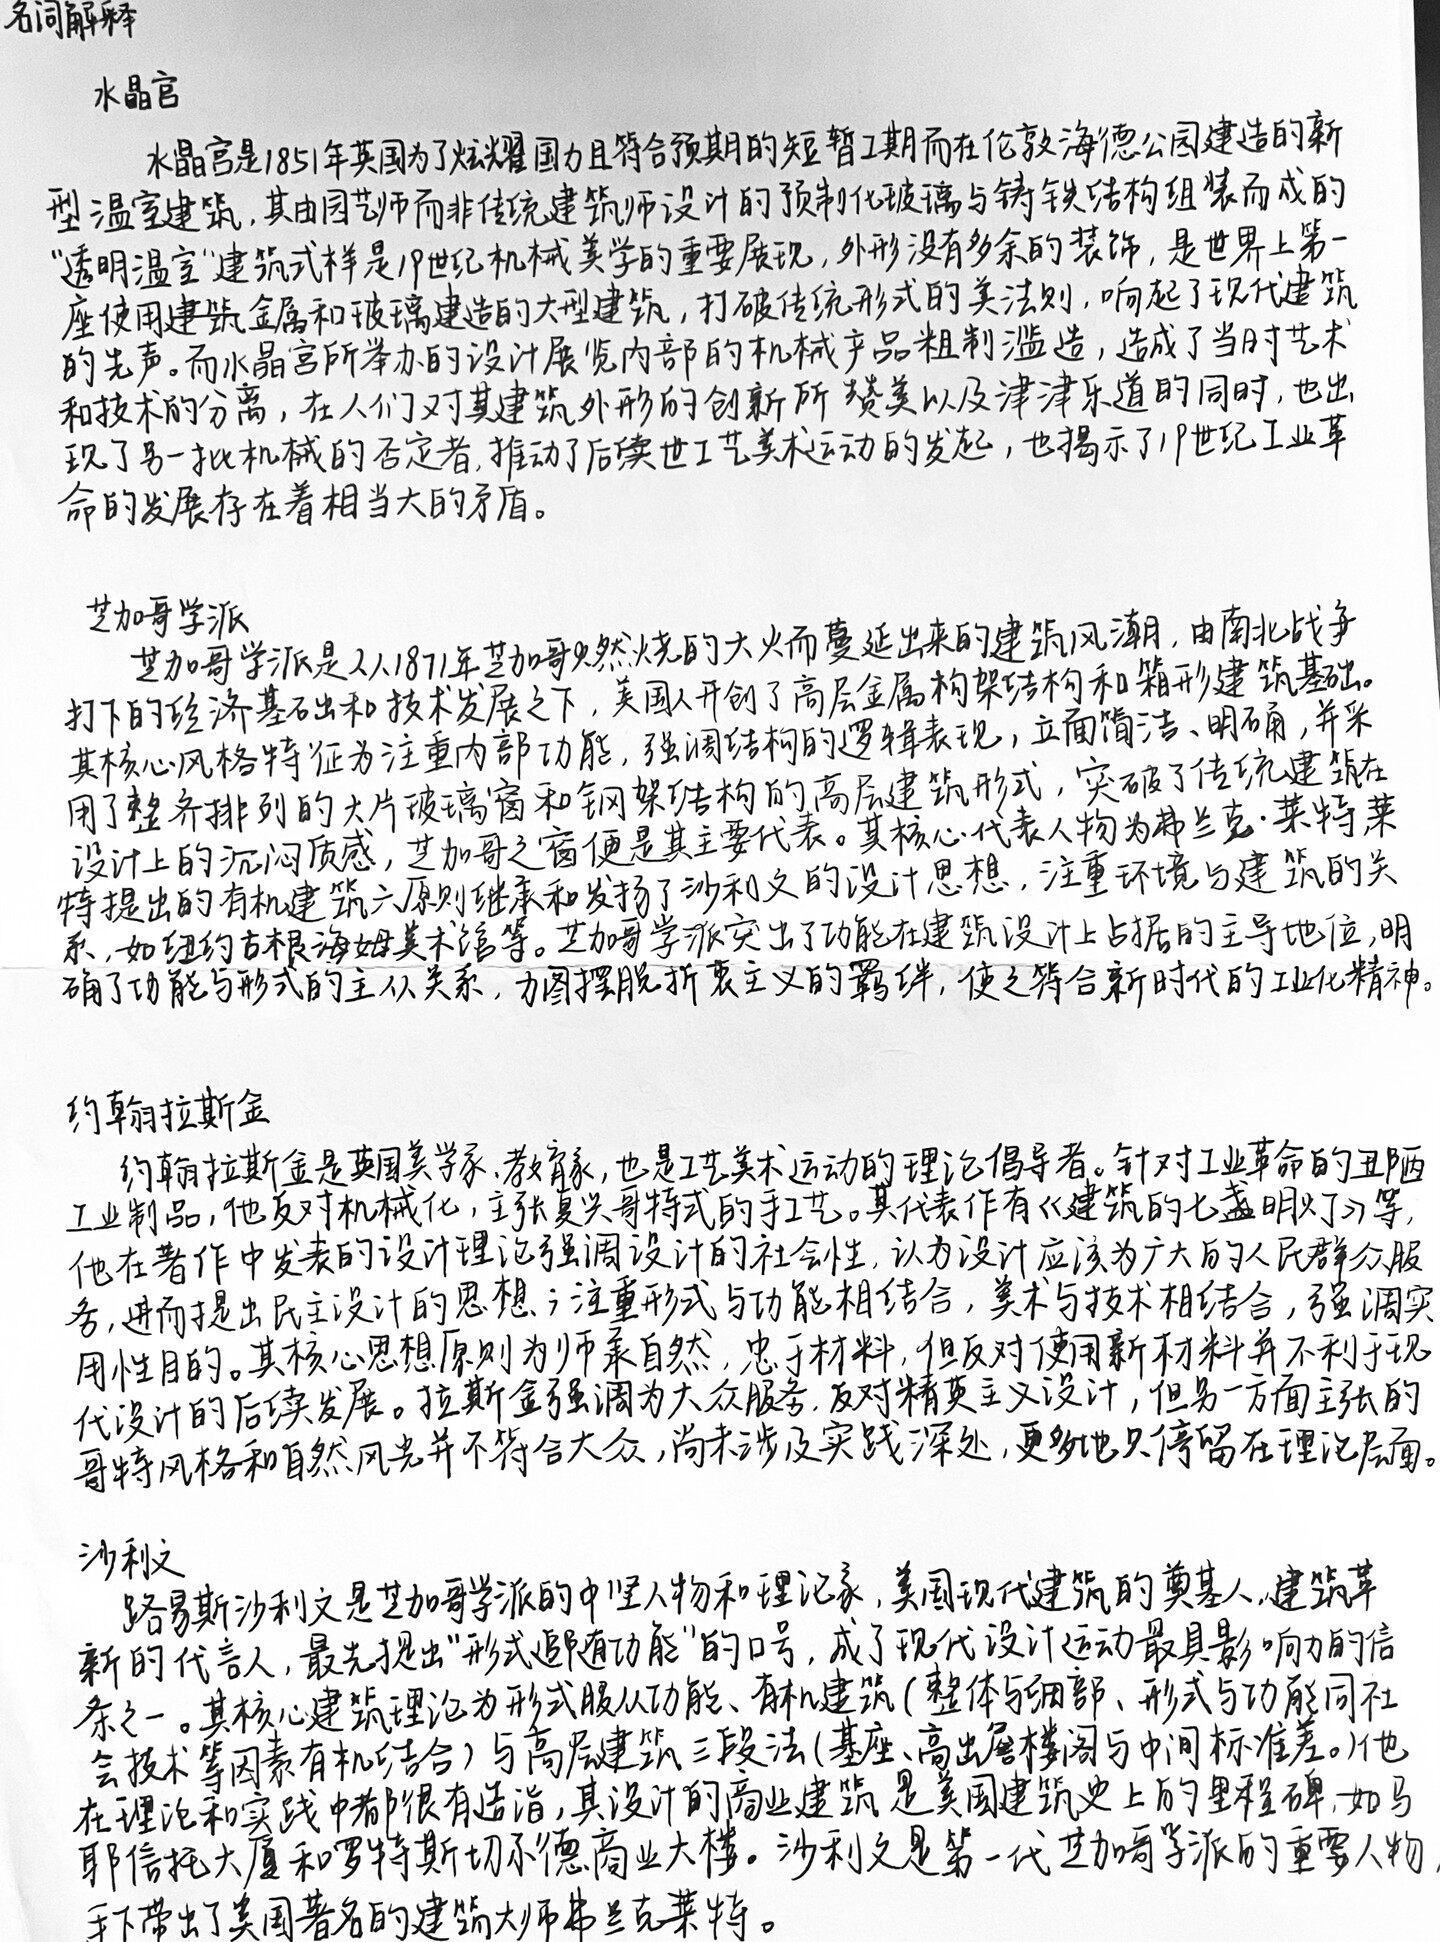 名词解释
水晶宫
水晶宫是1851年英国为了炫耀国力且符合预期的短暂工期而在伦敦海德公园建造的新
型温室建筑,其由园艺师而非传统建筑师设计的预制化玻璃与铸铁结构组装而成的
"透明温室"建筑式样是19世纪机械美学的重要展现,外形没有多余的装饰,是世界上第一
座使用建筑金属和玻璃建造的大型建筑,打破传统形式的美法则,响起了现代建筑
的先声。而水晶宫所举办的设计展览内部的机械产品粗制滥造,造成了当时艺术
和技术的分离,在人们对其建筑外形的创新所赞美以及津津乐道的同时,也出
现了另一批机械的否定者,推动了后续世工艺美术运动的发起,也揭示了19世纪工业革
命的发展存在着相当大的矛盾。
芝加哥学派
芝加哥学派是从1871年芝加哥燃烧的大火而蔓延出来的建筑风潮,由南北战争
打下的经济基础和技术发展之下,美国人开创了高层金属构架结构和箱形建筑基础。
其核心风格特征为注重内部功能,强调结构的逻辑表现,立面简洁、明确,并采
用了整齐排列的大片玻璃窗和钢架结构的高层建筑形式,突破了传统建筑在
设计上的沉闷质感,芝加哥之窗便是其主要代表。其核心代表人物为弗兰克·莱特莱
特提出的有机建筑六原则继承和发扬了沙利文的设计思想,注重环境与建筑的关
系,如纽约古根海姆美术馆等。芝加哥学派突出了功能在建筑设计上占据的主导地位,明
确了功能与形式的主从关系,力图摆脱折衷主义的羁绊,使之符合新时代的工业化精神。
约翰拉斯金
约翰拉斯金是英国美学家、教育家,也是工艺美术运动的理论倡导者。针对工业革命的丑陋
工业制品,他反对机械化,主张复兴哥特式的手工艺。其代表作有《建筑的七盏明灯》等,
他在著作中发表的设计理论强调设计的社会性,认为设计应该为广大的人民群众服
务,进而提出民主设计的思想;注重形式与功能相结合,美术与技术相结合,强调实
用性目的。其核心思想原则为师承自然,忠于材料,但反对使用新材料并不利于现
代设计的后续发展。拉斯金强调为大众服务,反对精英主义设计,但另一方面主张的
哥特风格和自然风光并不符合大众,尚未涉及实践深处,更多地只停留在理论层面。
沙利文
路易斯沙利文是芝加哥学派的中坚人物和理论家,美国现代建筑的奠基人、建筑革
新的代言人,最先提出"形式追随功能"的口号,成了现代设计运动最具影响力的信
条之一。其核心建筑理论为形式服从功能、有机建筑(整体与细部、形式与功能同社
会技术等因素有机结合)与高层建筑三段法(基座、高出层楼阁与中间标准差。)他
在理论和实践中都很有造诣,其设计的商业建筑是美国建筑史上的里程碑,如马
耶信托大厦和罗特斯切尔德商业大楼。沙利文是第一代芝加哥学派的重要人物,
手下带出了美国著名的建筑大师弗兰克莱特。